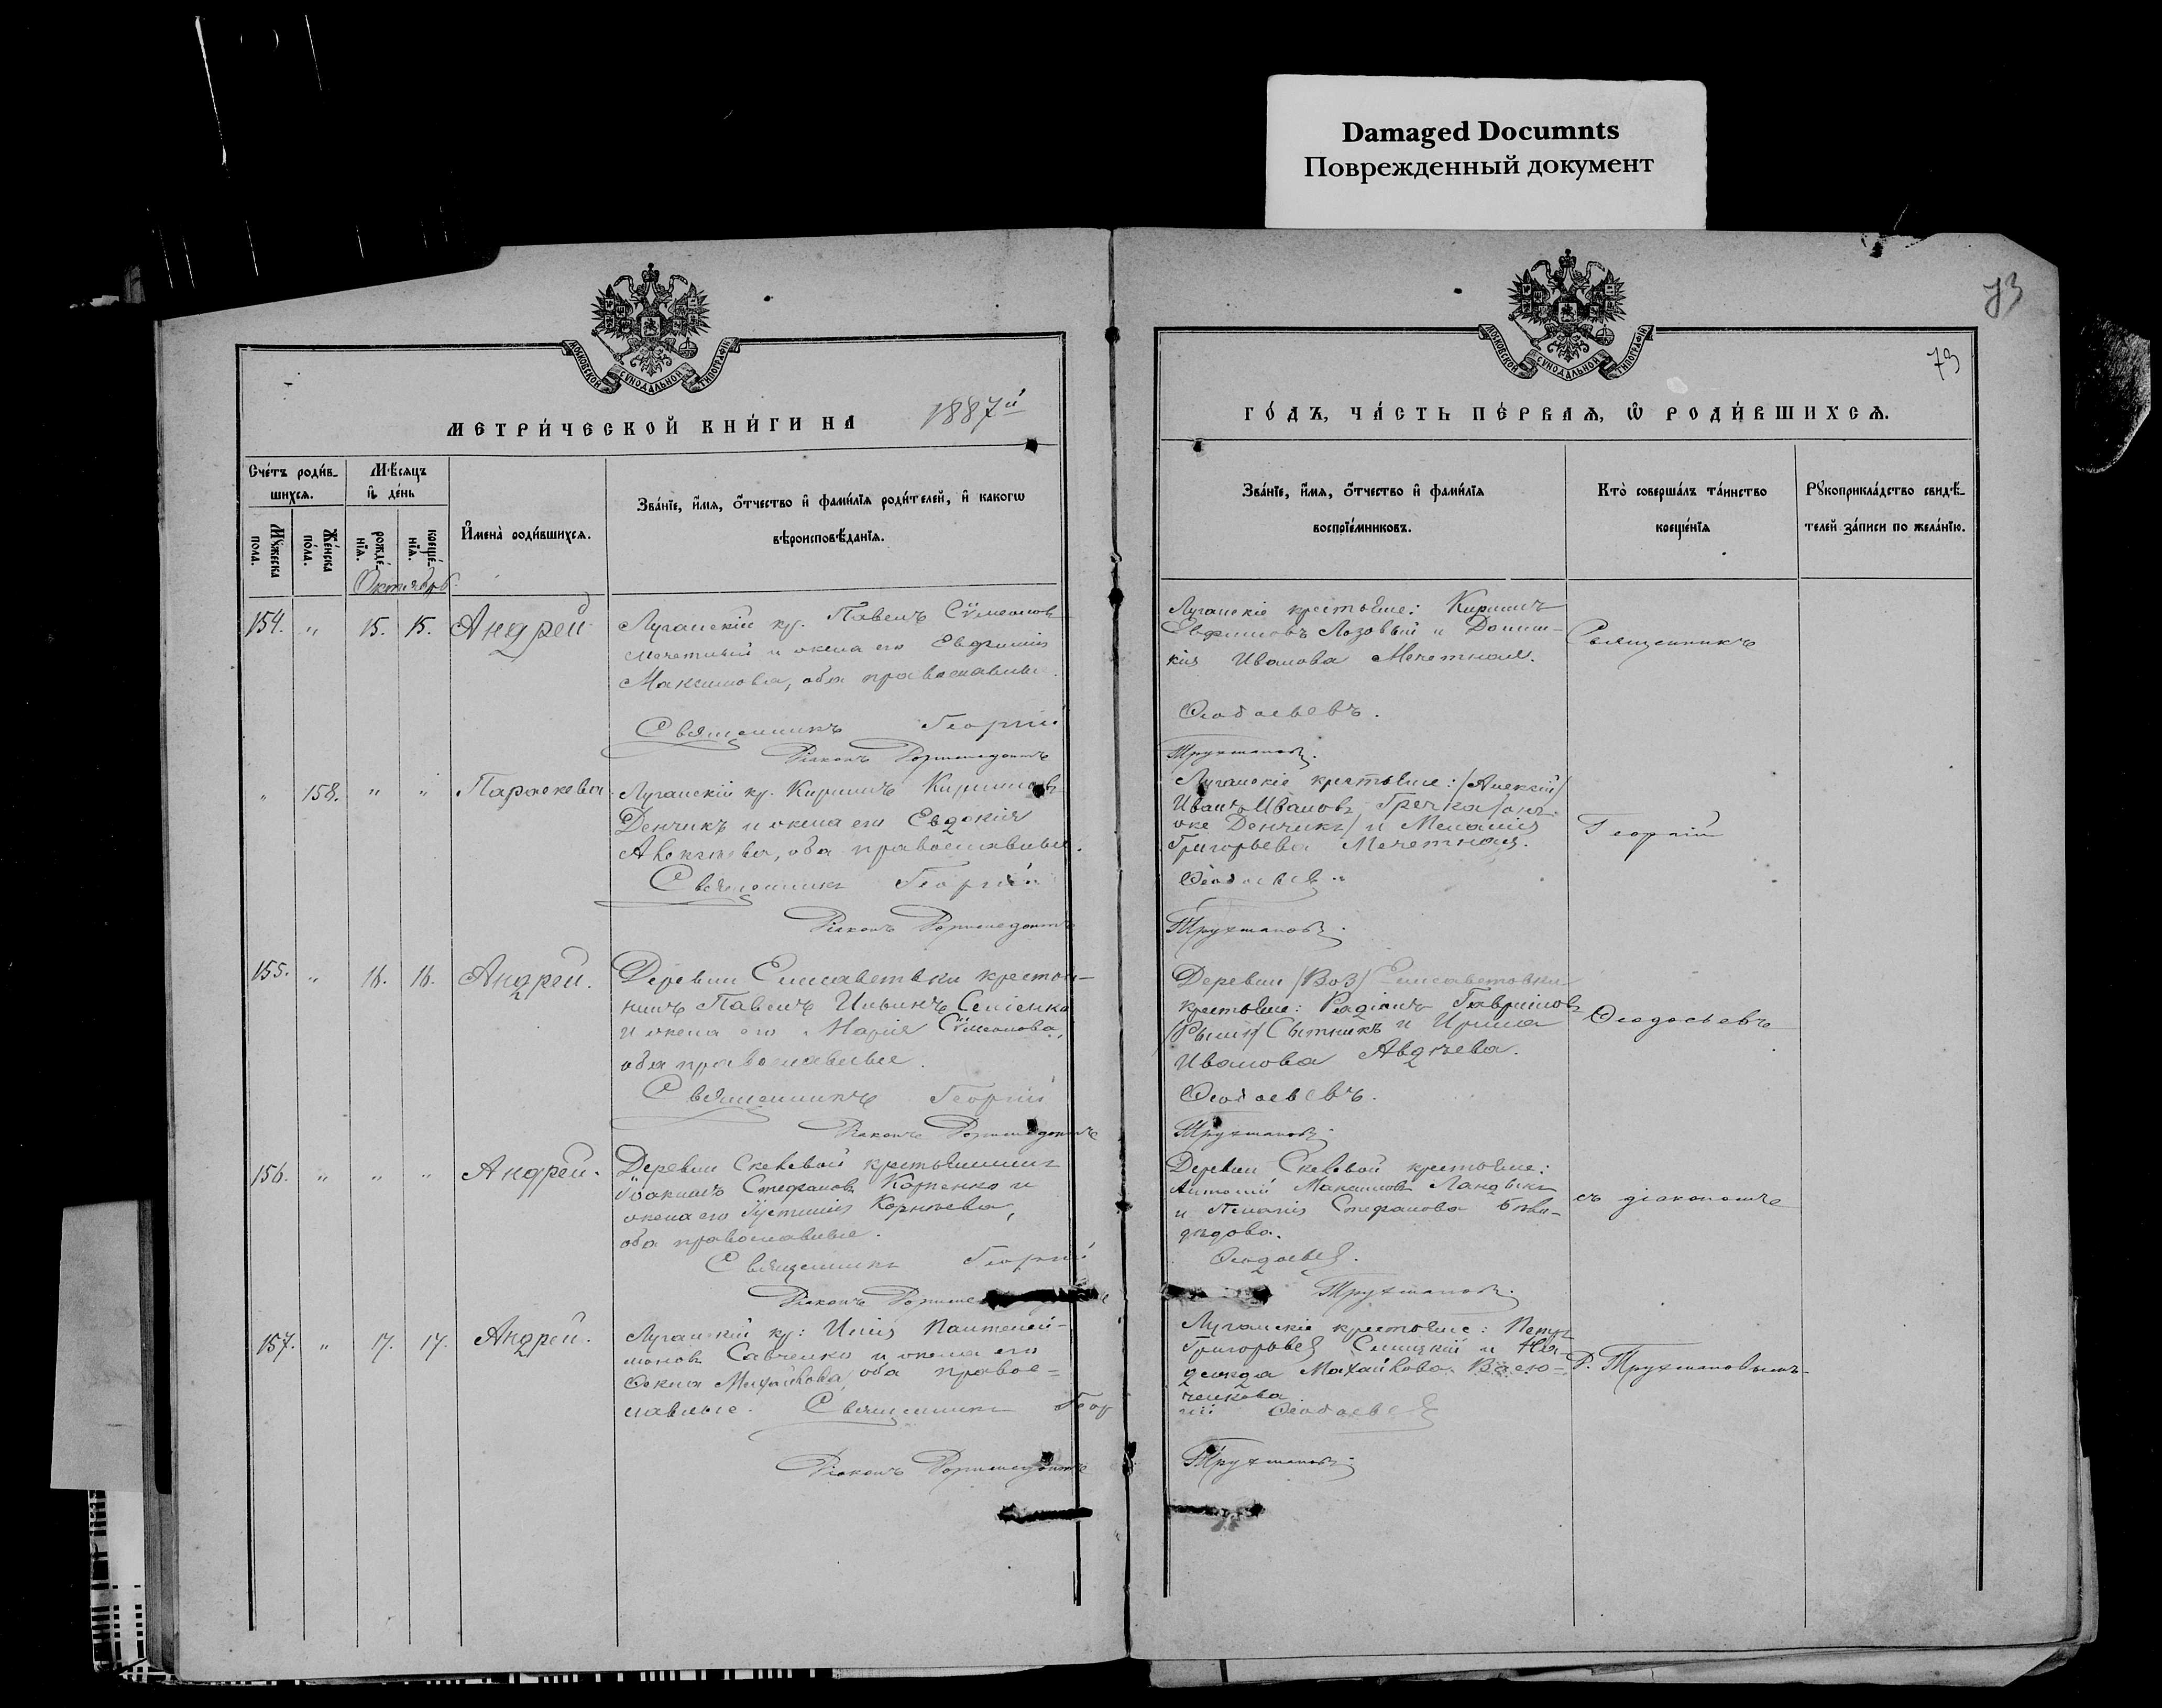 Damaged Documnts
Поврежденный документ
73
73
МОСКОВСКОЙ СУНОДАЛЬНОЙ ТИПОГРАФІИ
МОСКОВСКОЙ СУНОДАЛЬНОЙ ТИПОГРАФІИ
МЕТРИ́ЧЕСКОЙ КНИ́ГИ НА 1887й
ГО́ДЪ, ЧА́СТЬ ПЕ́РВАЯ, Ѿ РОДИ́ВШИХСЯ.
Сче́тъ роди́в-
шихся.
Мѣ́сяцъ
и҆ де́нь
Му́жеска пола.
Же́нска по́ла.
рожде́нїя.
креще́нїя.
И҆мена̀ роди́вшихся.
Зва́нїе, и҆́мя, ѻ҆́тчество и҆ фами́лїя роди́телей, и҆ какогѡ
вѣроисповѣ́данїя.
Зва́нїе, и҆́мя, ѻ҆́тчество и҆ фами́лїя
воспрїе́мниковъ.
Кто̀ соверша́лъ та́инство
креще́нїя
Рꙋкоприкла́дство свидѣ́-
телей за́писи по жела́нїю.
Октябрь
154. " 15. 15. Андрей
Луганскій кр. Павелъ Сѵмеоновъ
Мечетный и жена его Евфимія
Максимова, оба православные.
Священникъ Георгій
Діаконъ Дормедонтъ
Луганскіе крестьяне: Кириллъ
Евфимовъ Лозовый и Домни-
кія Иванова Мечетная.
Ѳеодосьевъ.
Трухмановъ.
Священникъ
" 158. " " Параскева
Луганскій кр. Кириллъ Кирилловъ
Денчикъ и жена его Евдокія
оба православные.
Священникъ Георгій
Діаконъ Дормедонтъ
Луганскіе крестьяне: /Алексій/
Иванъ Ивановъ Гречка /онъ
же Денчикъ/ и Меланія
Григорьева Мечетная.
Ѳеодосьевъ
Трухмановъ.
Георгій
155. " 16. 16. Андрей.
Деревни Елисаветовки крестья-
нинъ Павелъ Ильинъ
и жена его Марія Сѵмеонова,
оба православные.
Священникъ Георгій
Діаконъ Дормедонтъ
Деревни /Воз/ Елисаветовки
крестьяне: Радіонъ Гавриловъ
Сытникъ и Ирина
Иванова Авдѣева.
Ѳеодосьевъ.
Трухмановъ.
Ѳеодосьевъ
156. " " " Андрей.
Деревни Скелевой крестьянинъ
Іоакимъ Стефановъ Карпенко и
жена его Іустинія Корнѣева,
оба православные.
Священникъ Георгій
Діаконъ
Деревни Скелевой крестьяне:
Антоній Максимовъ Ландыкъ
и Стефанова
Ѳеодосьевъ.
Трухмановъ.
съ діакономъ
157. " 17. 17. Андрей.
Луганскій кр: Илія Пантелей-
моновъ Савченко и жена его
Ѳекла Михайлова, оба правос-
лавные. Священникъ Геор
Діаконъ Дормедонтъ
Луганскіе крестьяне: Петръ
Григорьевъ и На-
дежда Михайлова Васю-
ченкова
гій Ѳеодосьевъ
Трухмановъ.
Д. Трухмановымъ.